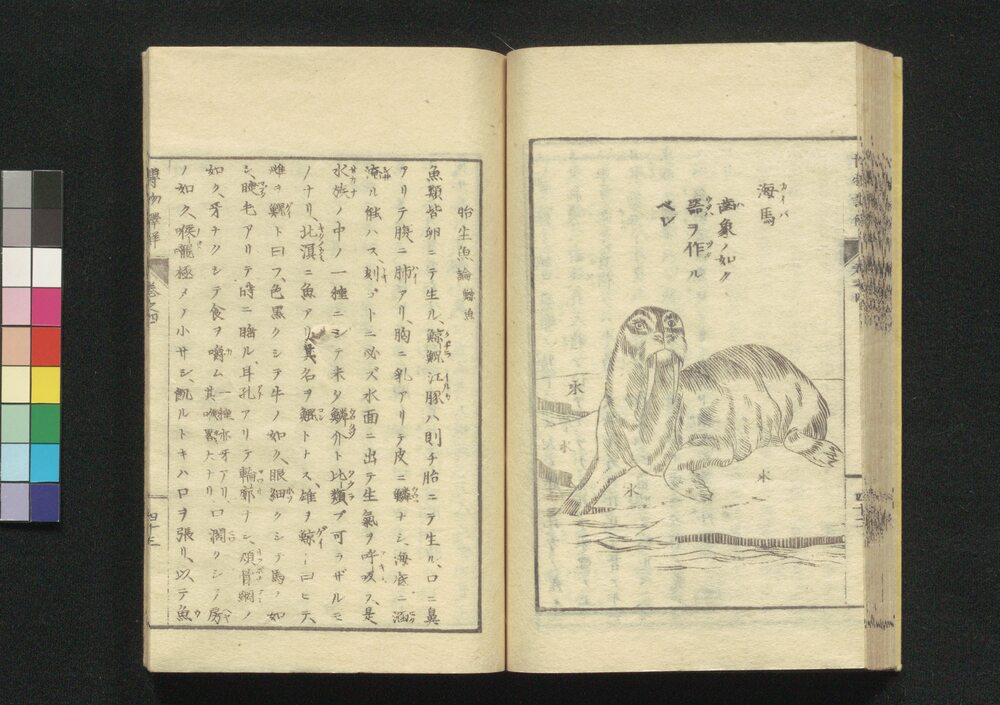 海馬
歯象ノ如ク
器ヲ作ル
ベシ
氷
氷
氷
氷
胎生魚論
魚類皆卵ニテ生ル、鯨鯢江豚ハ則チ胎ニテ生ル、口ニ鼻
アリテ腹ニ肺アリ、胸ニ乳アリテ皮ニ鱗ナシ、海底ニ涵
淹ル能ハス、刻ゴトニ必ズ水面ニ出テ生氣ヲ呼吸ス、是
水族ノ中ノ一種ニシテ未タ鱗介ト比類ス可ラザルモ
ノナリ、北溟ニ魚アリ其名ヲ鯤トナス、雄ヲ鯨ト曰ヒテ、
雌ヲ鯢ト曰フ、色黒クシテ牛ノ如ク、眼細クシテ馬ノ如
シ、睫毛アリテ時ニ瞎ル、耳孔アリテ輪郭ナシ、頑骨網ノ
如ク、牙ナクシテ食ヲ嚼ム 一種亦牙アリ、其喉甚大ナリ 口濶クシテ房
ノ如ク、喉嚨極メテ小サシ、飢ルトキハ口ヲ張リ、以テ魚
博物
巻之四
四十三